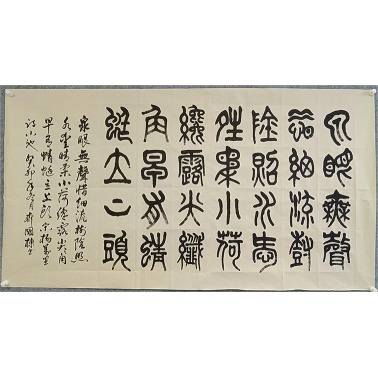 泉眼無聲
惜細流樹
陰照水愛
晴柔小荷
纔露尖纖
角早有蜻
蜓立上頭
泉眼無聲惜細流樹陰照
水愛晴柔小荷纔露尖尖角
早有蜻蜓立上頭宋楊萬里
詩小池癸卯年月國